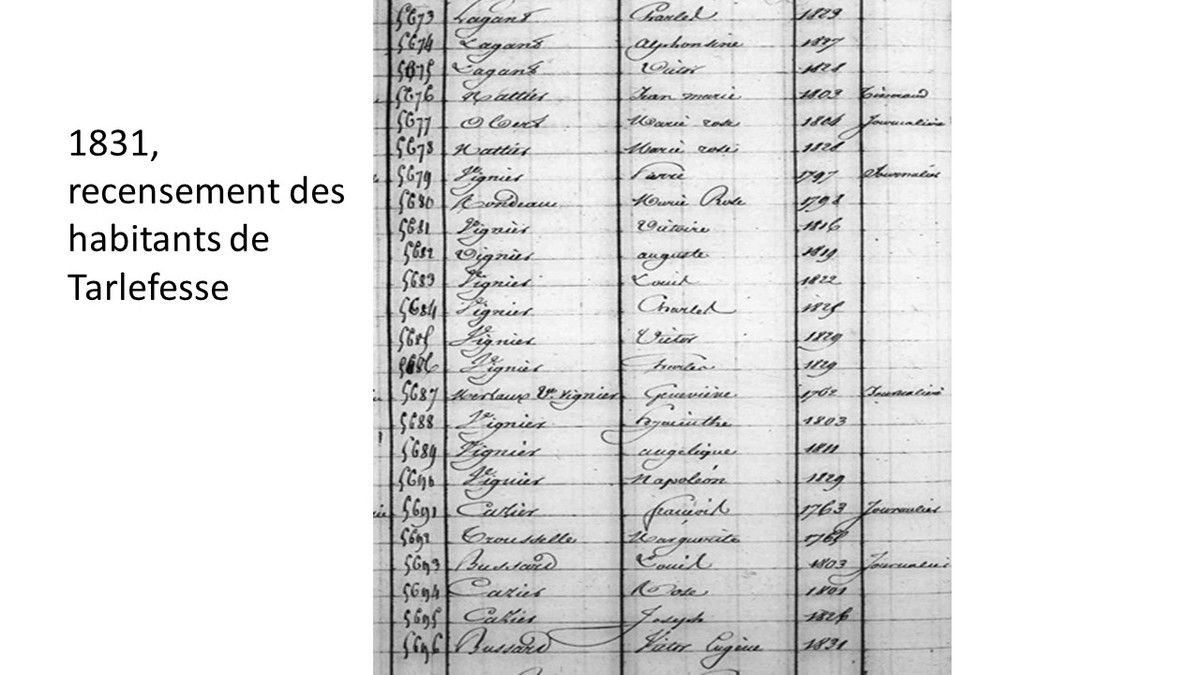 1831,
recensement des
habitants de
Tarlefesse
5673 Lagant Charles 1823
5674 Lagant alphonsine 1827
5675 Lagant Victor 1828
5676 Nattier Jean marie 1803 Tisserand
5677 Obert Marie rose 1804 Journalière
5678 Nattier Marie rose 1828
5679 Vignier Pierre 1797 Journalier
5680 Rondeau Marie Rose 1798
5681 Vignier Victoire 1816
5682 Vignier auguste 1819
5683 Vignier Louis 1822
5684 Vignier Charles 1825
5685 Vignier Victor 1829
5686 Vignier Charles 1829
5687 Ve. Vignier Geneviève 1762 Journalière
5688 Vignier hyacinthe 1803
5689 Vignier angélique 1811
5690 Vignier Napoléon 1829
5691 Cazier françois 1763 Journalier
5692 Trousselle Marguerite
5693 Bussard Louis 1803 Journalier
5694 Cazier Rose 1801
5695 Cazier Joseph 1826
5696 Bussard Victor Eugène 1831